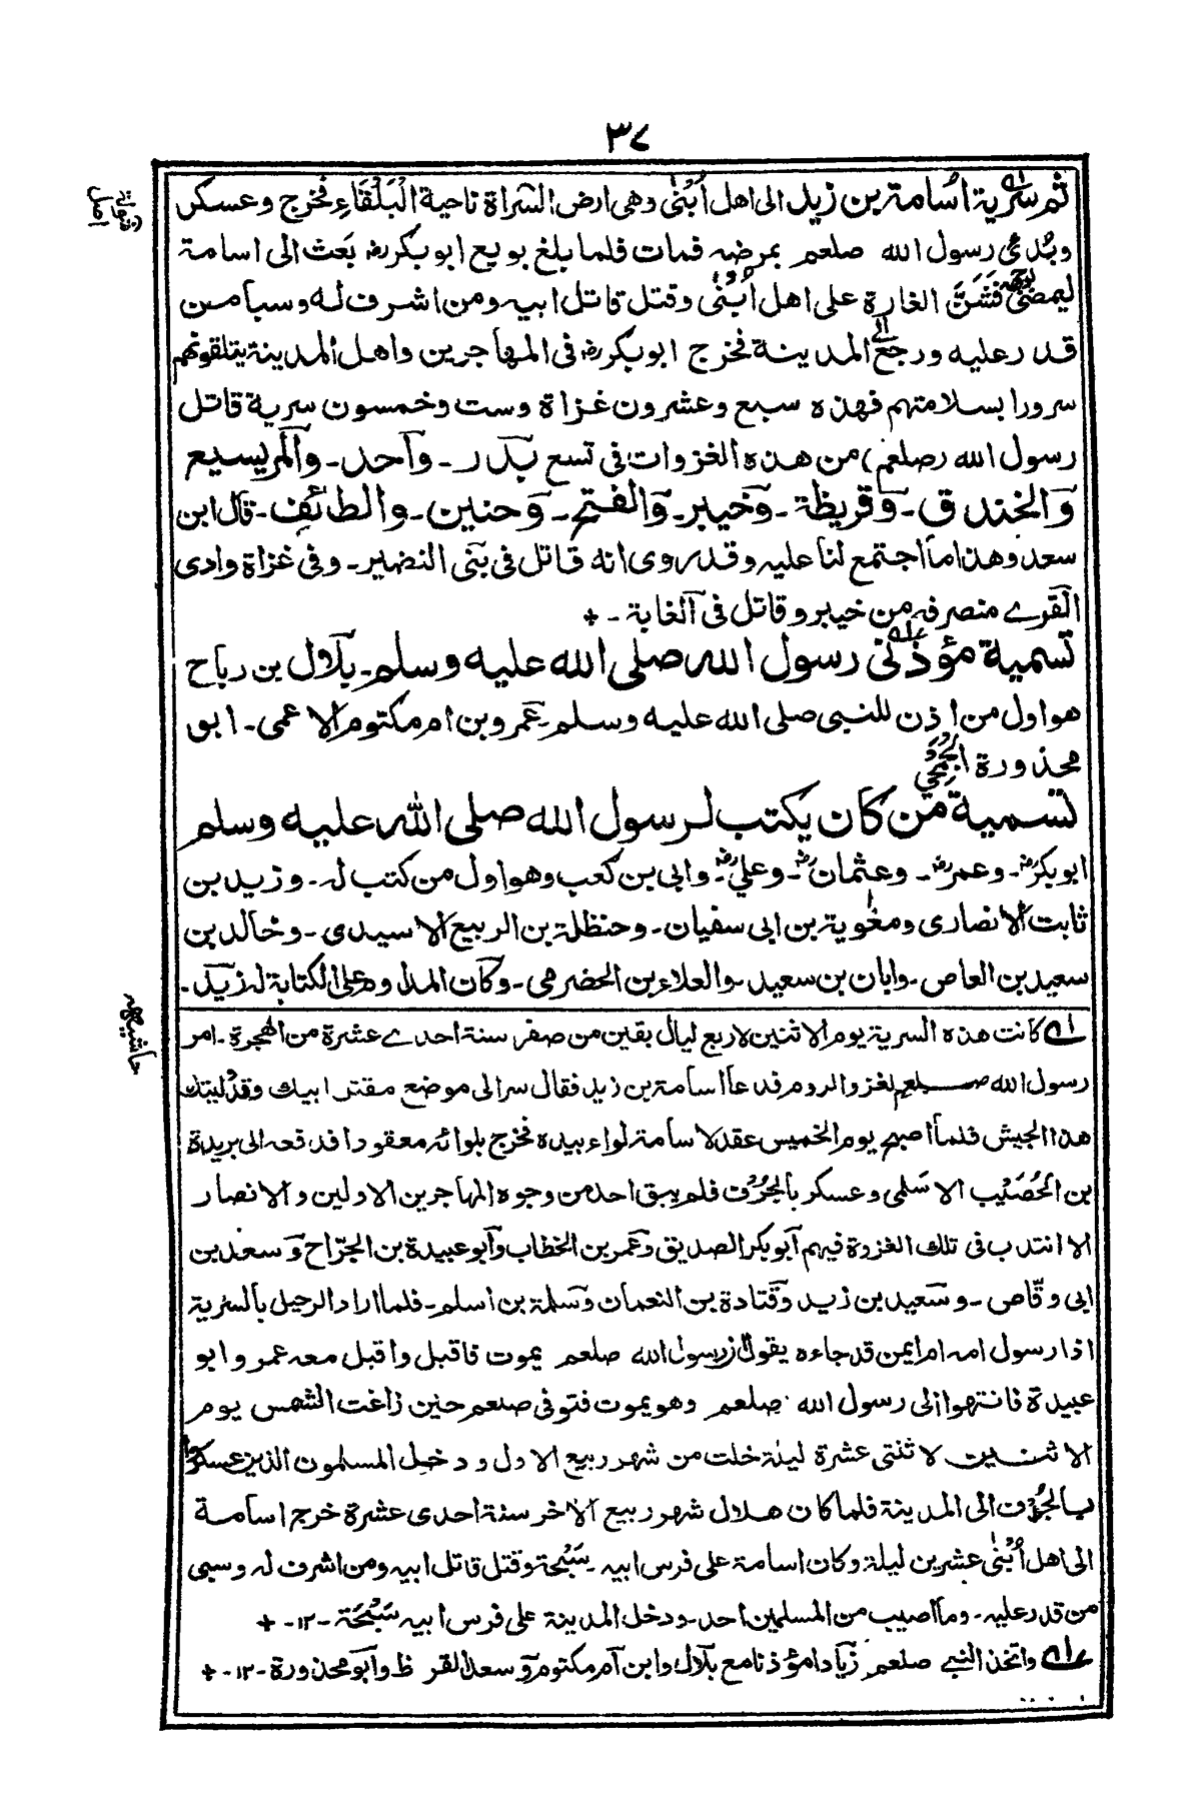 ٣٧
ثم سرية اُسامة بن زيد الى اهل اُبْنٰى وهى ارض الشراة ناحية الْبَلْقَاءِ فخرج وعسكر
وبُدئ رسول الله صلعم بمرضه فمات فلما بلغ بويع ابو بكر رض بَعث الى اسامة
ليمضى فَشَنَّ الغارة على اهل اُبْنٰى وقتل قاتل ابيه ومن اشرف له وسبا من
قدر عليه ورجع الى المدينة فخرج ابو بكر رض فى المهاجرين واهل المدينة يتلقونهم
سرورا بسلامتهم فهذه سبع وعشرون غزاة وست وخمسون سرية قاتل
رسول الله (صلعم) من هذه الغزوات فى تسع بدر - واحد - والمريسيع
والخندق - وقريظة - وخيبر - والفتح - وحنين - والطائف - قال ابن
سعد وهذا ما اجتمع لنا عليه وقد روى انه قاتل فى بنى النضير - وفى غزاة وادى
القرے منصرفه من خيبر وقاتل فى الغابة - +
تسمية مؤذنى رسول الله صلى الله عليه وسلم - بلال بن رباح
هو اول من اذن للنبى صلى الله عليه وسلم عمرو بن ام مكتوم الاعمى - ابو
محذورة الجُمَحِي
تسمية من كان يكتب لرسول الله صلى الله عليه وسلم
ابو بكر رض - وعمر رض - وعثمان رض - وعلي رض - وابى بن كعب وهو اول من كتب له - وزيد بن
ثابت الانصارى ومعٰوية بن ابى سفيان - وحنظلة بن الربيع الاسيدى - وخالد بن
سعيد بن العاص - وابان بن سعيد - والعلاء بن الحضرمى - وكان المداوم على الكتابة له زيد -
حاشيه
له كانت هذه السرية يوم الاثنين لاربع ليال بقين من صفر سنة احدے عشرة من الهجرة - امر
رسول الله صلعم لغزو الروم فدعا اسامة بن زيد فقال سر الى موضع مقتر ابيك وقد ليتك
هذا الجيش فلما اصبح يوم الخميس عقد لاسامة لواء بيده فخرج بلوائه معقودا فدفعه الى بريدة
بن الحُصَيْب الاسلمى وعسكر بالجُرُف فلم يبق احد من وجوه المهاجرين الاولين والانصار
الا انتدب فى تلك الغزوة فيهم ابو بكر الصديق وعمر بن الخطاب وابو عبيدة بن الجرّاح وسعد بن
ابى وقّاص - وسعيد بن زيد وقتادة بن النعمان وسلمة بن اسلم - فلما اراد الرحيل بالسرية
اذا رسول امه ام ايمن قد جاءه يقول ان رسول الله صلعم يموت فاقبل واقبل معه عمر وابو
عبيدة فانتهوا الى رسول الله صلعم وهو يموت فتوفى صلعم حين زاغت الشمس يوم
الاثنين لاثنتى عشرة ليلة خلت من شهر ربيع الاول ودخل المسلمون الذين عسكروا
بالجُرُف الى المدينة فلما كان هلال شهر ربيع الاخر سنة احدى عشرة خرج اسامة
الى اهل اُبْنٰى عشرين ليلة وكان اسامة على فرس ابيه سَبْحَة وقتل قاتل ابيه ومن اشرف له وسبى
من قدر عليه - وما اصيب من المسلمين احد - ودخل المدينة على فرس ابيه سَبْحَة - ١٢ - +
واتخذ النبے صلعم زيادا مؤذنا مع بلال وابن ام مكتوم وسعد القرظ وابو محذورة - ١٢ - +